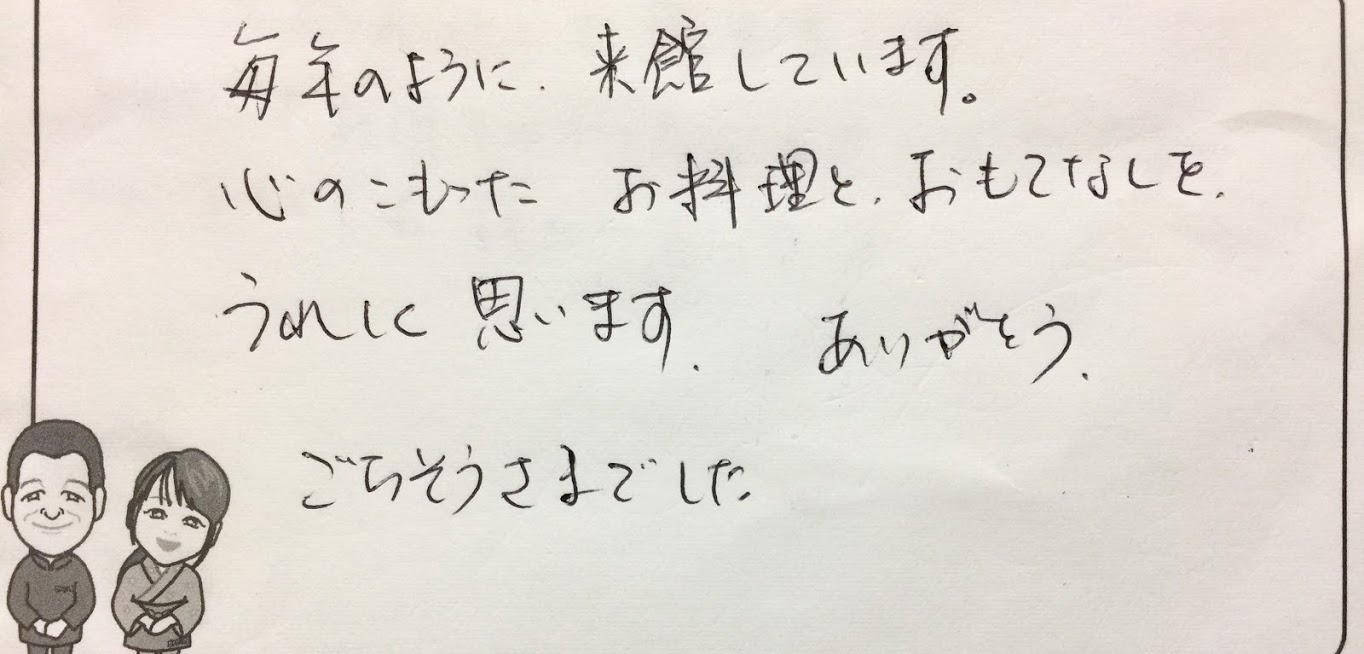 毎年のように、来館しています。
心のこもった お料理と、おもてなしを、
うれしく思います。 ありがとう。
ごちそうさまでした。